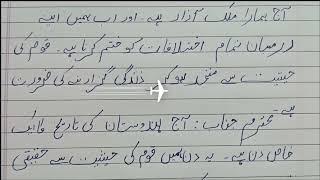 آج ہمارا ملک آزاد ہے۔ اور اب ہمیں اپنے
درمیان تمام اختلافات کو ختم کرنا ہے۔ قوم کی
حیثیت ... سے متفق ہو کر زندگی گزارنے کی ضرورت
ہے
محترم جناب: آج ہندوستان کی تاریخ کا ایک
خاص دن ہے۔ یہ دن ہمیں قوم کی حیثیت ... سے حقیقی